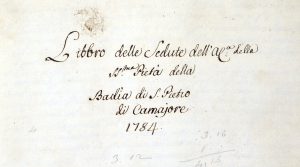 Libbro delle Sedute dell'Op.ᵃ della
SS.ᵐᵃ Pietà della
Badia di S. Pietro
di Camajore
1784.
3. 12
3. 16